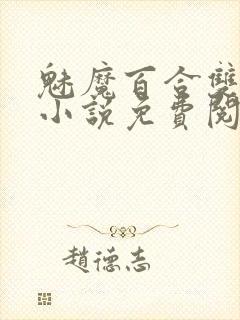 魅魔百合雙
小說免費閱
趙德志